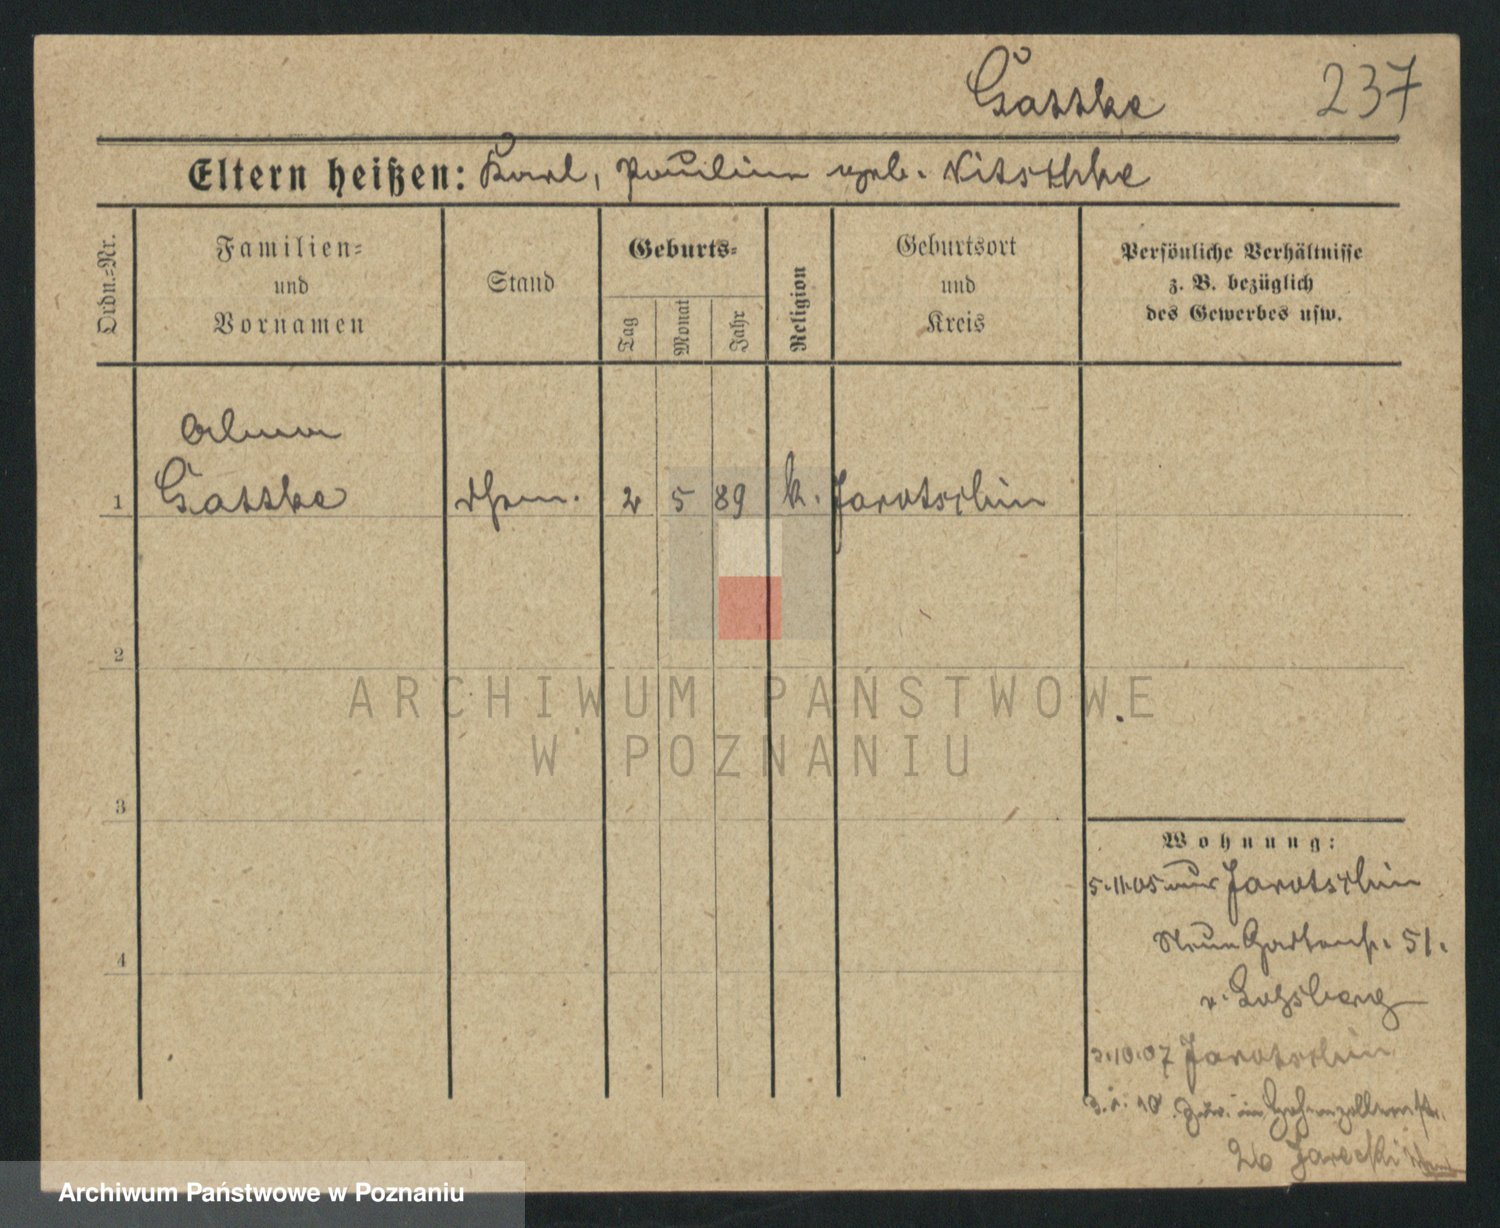 Gasske 237
Eltern heißen: Karl, Pauline geb. Nitschke
Ordn.-Nr.
Familien-
und
Vornamen
Stand
Geburts-
Tag
Monat
Jahr
Religion
Geburtsort
und
Kreis
Persönliche Verhältnisse
z. B. bezüglich
des Gewerbes usw.
1 Gasske 2 5 89 k. Jarotschin
2
ARCHIWUM PAŃSTWOWE
W POZNANIU
3
Wohnung:
5.11.05 aus Jarotschin
Neue Gartenstr. 51.
v.
4
2.10.07 Jarotschin
10 zur. in Hohenzollernstr.
26 Jarecki
Archiwum Państwowe w Poznaniu